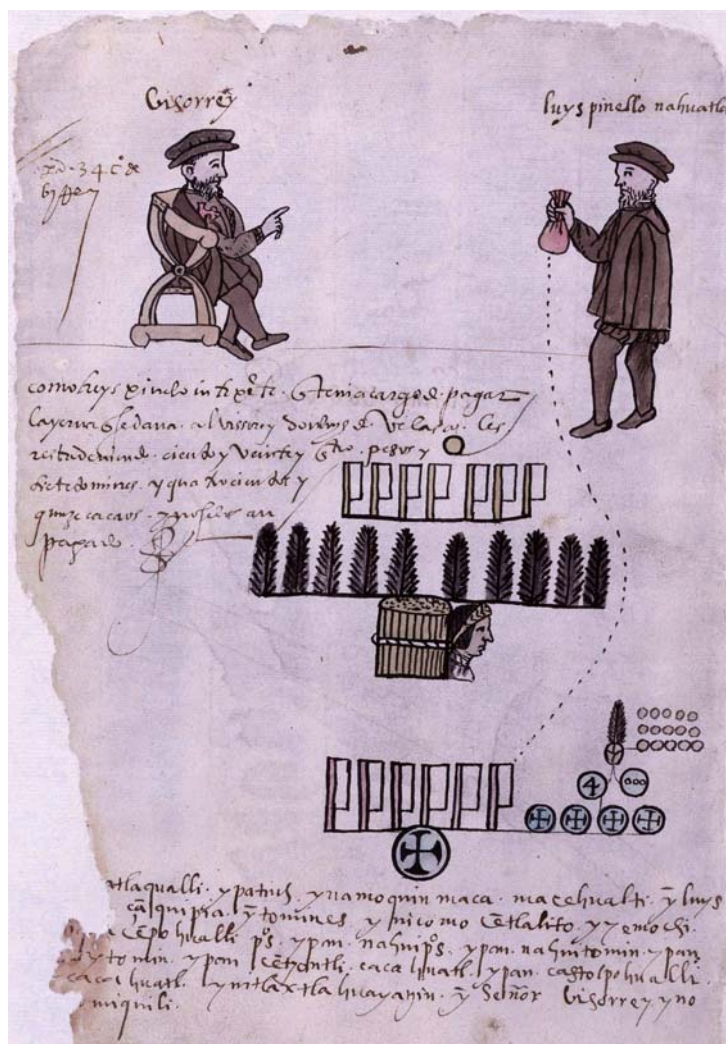 Visorrey
luys pinello nahuatla
34
como luys pinelo interp̃te. q̃ tenia cargo de pagar
la yerva q̃ se dava. al vissorey don luys de velasco. les
resta deviendo. ciento y veinte y qtro. pesos y
siete tomines. y quatrocientos y
quinze cacaos. y no se los an
pagado.
4
000
atlaqualli. ypatiuh. ynamoquinmaca. macehualti. ỹ luys
cā quipia. ỹ tomines. ynicomo cētlalito. yyemochi.
cēpohualli pºs. ypan. nahui pºs. ypan. nahui tomin. ypan
tomin. ypan cētzontli. cacahuatl. ypan. caxtolpohualli
cacahuatl. ynitlaxtlahuayatzin. ỹ Señor Visorrey. yno
miquili.